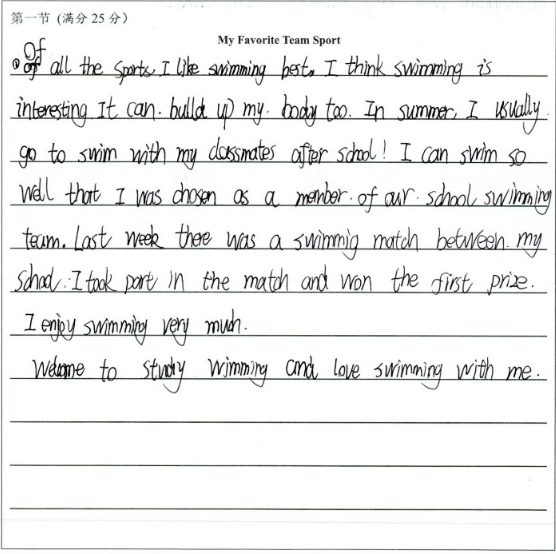 第一节 (满分 25 分)
My Favorite Team Sport
Of
all the sports, I like swimming best. I think swimming is
interesting It can. build up my. body too. In summer, I usually.
go to swim with my classmates after school! I can swim so
well that I was chosen as a member. of our. school swimming
team. Last week there was a swimmig match between. my
school. I took part in the match and won the first prize.
I enjoy swimming very much.
Welcome to study wimming and love swimming with me.